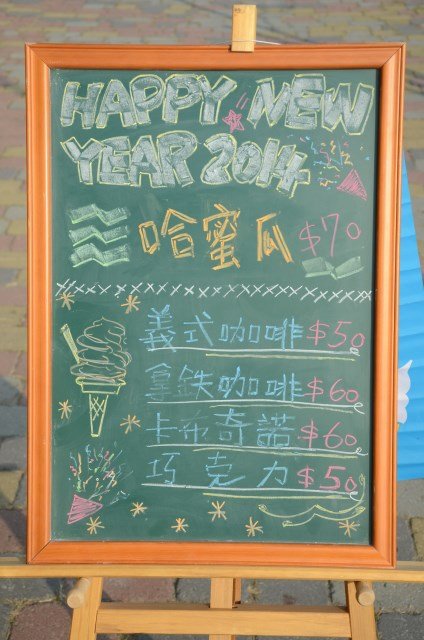 HAPPY NEW
YEAR 2014
哈蜜瓜 $70
義式咖啡 $50
拿鉄咖啡 $60
卡布奇諾 $60
巧克力 $50